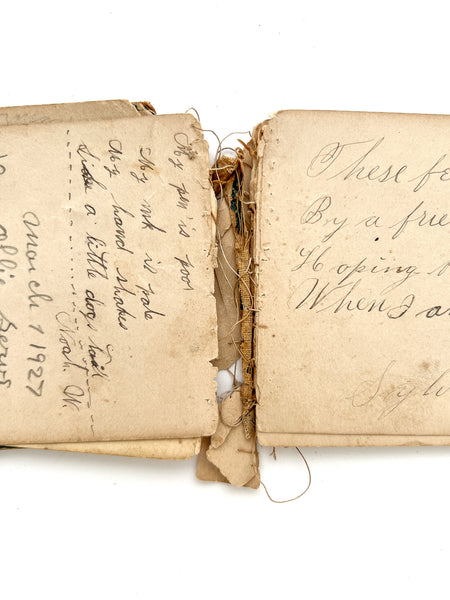 My pen is poor
My ink is pale
My hand shakes
Like a little dogs tail
Noah W.
March 1 1927
Allie
These fe
By a frie
Hoping
When I a
Sylv